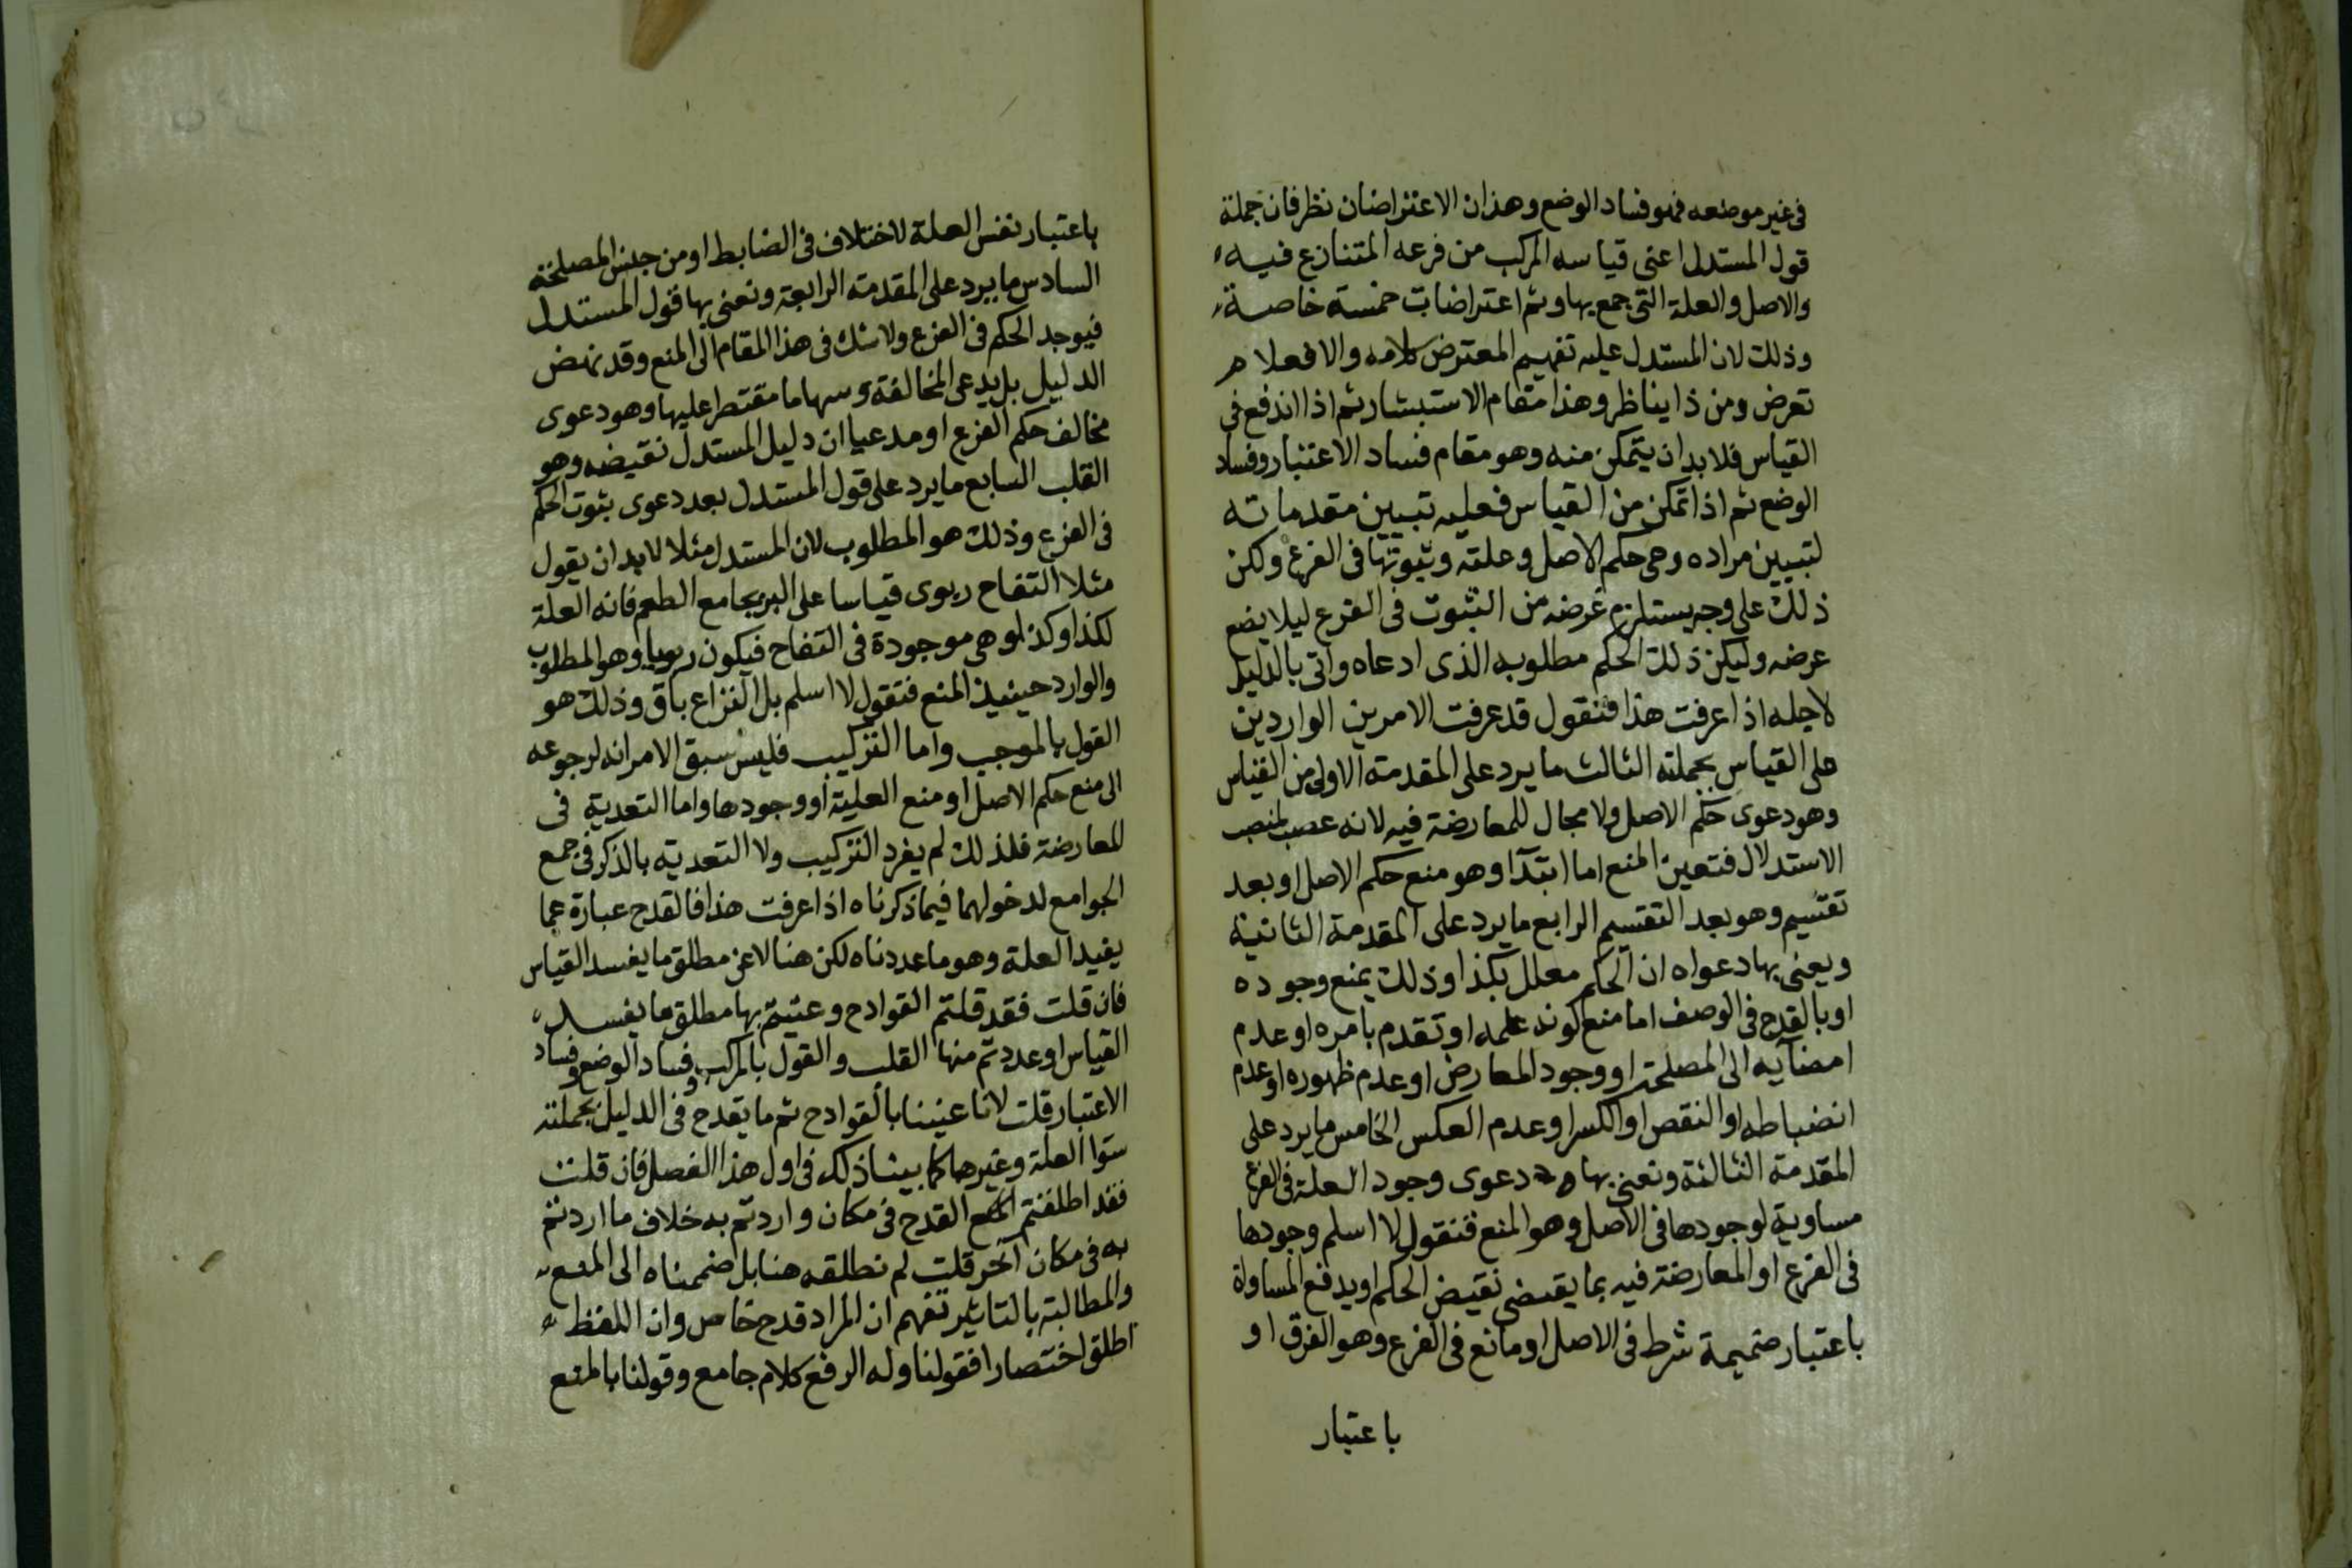 فى غير موضعه فهو فساد الوضع وهذان الاعتراضان نظرفان جملة
قول المستدل اعنى قياسه المركب من فرعه المتنازع فيه
والاصل والعلة التى جمع بها وثم اعتراضات خمسة خاصة
وذلك لان المستدل عليه تفهيم المعترض كلامه والا فعلام
تعرض ومن ذا يناظر وهذا مقام الاستبشار ثم اذا اندفع فى
القياس فلا بد ان يتمكن منه وهو مقام فساد الاعتبار وفساد
الوضع ثم اذا تمكن من القياس فعليه تبيين مقدماته
لتبيين مراده وهى حكم الاصل وعلته وثبوتها فى الفرع ولكن
ذلك على وجه يستلزم غرضه من الثبوت فى الفرع ليلا يضع
عرضه وليكن ذلك الحكم مطلوبه الذى ادعاه واتى بالدليل
لاجله اذا عرفت هذا فنقول قد عرفت الامرين الواردين
على القياس بجملته الثالث ما يرد على المقدمة الاولى من القياس
وهو دعوى حكم الاصل ولا مجال للمعارضة فيه لانه عصب لمنصب
الاستدلال فتعين المنع اما ابتدآ وهو منع حكم الاصل او بعد
تقسيم وهو بعد التقسيم الرابع ما يرد على المقدمة الثانية
ويعنى بها دعواه ان الحكم معلل بكذا وذلك يمنع وجوده
او بالقدح فى الوصف اما منع كونه علمه او تقدم بامره او عدم
امضآيه الى المصلحة او وجود المعارض او عدم ظهوره او عدم
انضباطه او النقص او الكسر او عدم العكس الخامس ما يرد على
المقدمة الثالثة ونعنى بها دعوى وجود العلة فى الفرع
مساوية لوجودها فى الاصل وهو المنع فنقول لا اسلم وجودها
فى الفرع او المعارضة فيه بما يقتضى نقيض الحكم او يدفع المساواة
باعتبار ضميمة شرط فى الاصل او مانع فى الفرع وهو الفرق او
باعتبار
باعتبار نفس العلة لاختلاف فى الضابط او من جنس المصلحة
السادس ما يرد على المقدمة الرابعة ونعنى بها قول المستدل
فيوجد الحكم فى الفرع ولا شك فى هذا المقام الى المنع وقد نهض
الدليل بل يدعى المخالفة وسها ما مقتصرا عليها وهو دعوى
مخالف حكم الفرع او مدعيا ان دليل المستدل نقيضه وهو
القلب السابع ما يرد على قول المستدل بعد دعوى ثبوت الحكم
فى الفرع وذلك هو المطلوب لان المستدل مثلا لا بد ان يقول
مثلا التفاح ربوى قياسا على البر بجامع الطعم فانه العلة
لكذا وكذا وهى موجودة فى التفاح فيكون ربويا وهو المطلوب
والوارد حينيذ المنع فتقول لا اسلم بل النزاع باق وذلك هو
القول بالموجب واما التركيب فليس سبق الامر انه لرجوعه
الى منع حكم الاصل او منع العلية او وجودها واما التعدية فى
للمعارضة فلذلك لم يفرد التركيب ولا التعدية بالذكر فى جمع
الجوامع لدخولهما فيما ذكرناه اذا عرفت هذا فالقدح عبارة عما
يفيد العلة وهو ما عددناه لكن هنا لاعن مطلق ما يفسد القياس
فان قلت فقد قلتم القوادح وعنيتم بها مطلق ما يفسد
القياس او عددتم منها القلب والقول بالمركب وفساد الوضع وفساد
الاعتبار قلت لانا عنينا بالقوادح ثم ما يقدح فى الدليل بجملته
سوا العلة وغيرها كما بينا ذلك فى اول هذا الفصل فان قلت
فقد اطلقتم القدح فى مكان واردتم به خلاف ما اردتم
به فى مكان آخر قلت لم نطلقه هنا بل ضممناه الى المنع
والمطالبة بالتاثير تفهم ان المراد قدح خاص وان اللفظ
اطلق اختصارا فقولنا وله الرفع كلام جامع وقولنا بالمنع